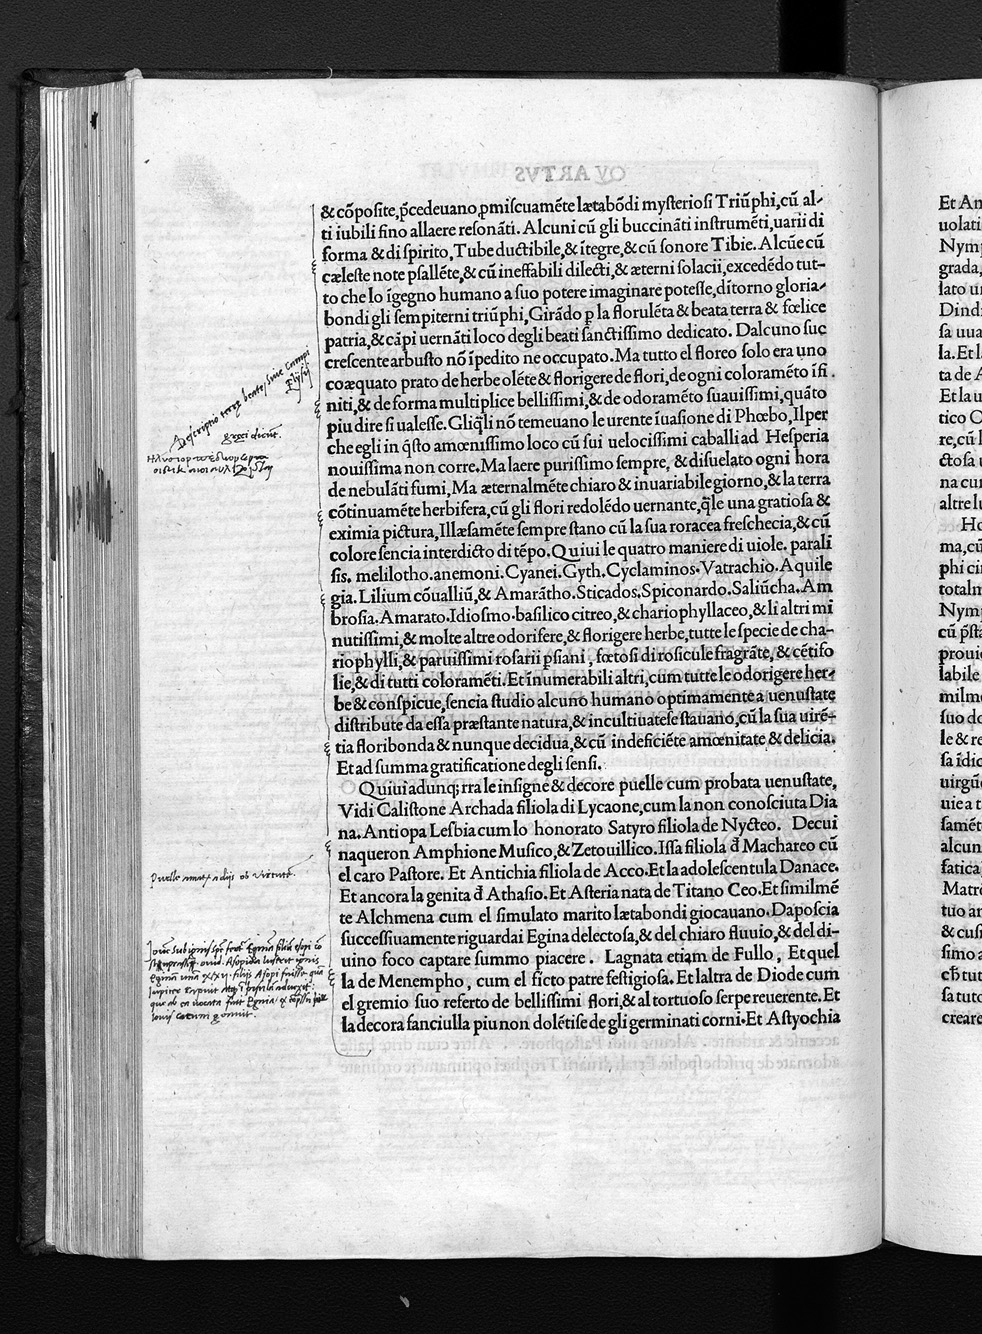 & cõposite, p̃cedeuano, ꝓmiscuamẽte lætabõdi mysteriosi Triũphi, cũ al-
ti iubili sino allaere resonãti. Alcuni cũ gli buccinãti instrumẽti, uarii di
forma & di spirito, Tube ductibile, & ĩtegre, & cũ sonore Tibie. Alcũe cũ
cæleste note psallẽte, & cũ ineffabili dilecti, & æterni solacii, excedẽdo tut-
to che lo ĩgegno humano a suo potere imaginare potesse, dĩtorno gloria-
bondi gli sempiterni triũphi, Girãdo ꝑ la florulẽta & beata terra & fœlice
patria, & cãpi uernãti loco degli beati sanctissimo dedicato. Dalcuno suc
crescente arbusto nõ ĩpedito ne occupato. Ma tutto el floreo solo era uno
coæquato prato de herbe olẽte & florigere de flori, de ogni coloramẽto ĩfi.
niti, & de forma multiplice bellissimi, & de odoramẽto suauissimi, quãto
piu dire si ualesse. Gliq̃li nõ temeuano le urente ĩuasione di Phœbo, Il per
che egli in q̃sto amœnissimo loco cũ sui uelocissimi caballi ad Hesperia
nouissima non corre. Ma laere purissimo sempre, & disuelato ogni hora
de nebulãti fumi, Ma æternalmẽte chiaro & inuariabile giorno, & la terra
cõtinuamẽte herbifera, cũ gli flori redolẽdo uernante, q̃le una gratiosa &
eximia pictura, Illæsamẽte sempre stano cũ la sua roracea freschecia, & cũ
colore sencia interdicto di tẽpo. Quiui le quatro maniere di uiole. parali
sis. melilotho. anemoni. Cyanei. Gyth. Cyclaminos. Vatrachio. Aquile
gia. Lilium cõualliũ, & Amarãtho. Sticados. Spiconardo. Saliũcha. Am
brosia. Amarato. Idiosmo. basilico citreo, & chariophyllaceo, & li altri mi
nutissimi, & molte altre odorifere, & florigere herbe, tutte le specie de cha-
riophylli, & paruissimi rosarii ꝑsiani, fœtosi di rosicule fragrãte, & cẽtifo
lie, & di tutti coloramẽti. Et inumerabili altri, cum tutte le odorigere her-
be & conspicue, sencia studio alcuno humano optimamente a uenustate
distribute da essa præstante natura, & incultiuatese stauano, cũ la sua uirẽ-
tia floribonda & nunque decidua, & cũ indeficiẽte amœnitate & delicia.
Et ad summa gratificatione degli sensi.
Quiui adunq; rra le insigne & decore puelle cum probata uenustate,
Vidi Calistone Archada filiola di Lycaone, cum la non conosciuta Dia
na. Antiopa Lesbia cum lo honorato Satyro filiola de Nycteo. Decui
naqueron Amphione Musico, & Zeto uillico. Issa filiola đ Machareo cũ
el caro Pastore. Et Antichia filiola de Acco. Et la adolescentula Danace.
Et ancora la genita đ Athasio. Et Asteria nata de Titano Ceo. Et similmẽ
te Alchmena cum el simulato marito lætabondi giocauano. Daposcia
successiuamente riguardai Egina delectosa, & del chiaro fluuio, & del di-
uino foco captare summo piacere. Lagnata etiam de Fullo, Et quel
la de Menempho, cum el ficto patre festigiosa. Et laltra de Diode cum
el gremio suo referto de bellissimi flori, & al tortuoso serpe reuerente. Et
la decora fanciulla piu non dolẽtise de gli germinati corni. Et Astyochia
Descriptio terræ beatæ siue Campi
Elysij
græci dicunt.
Puellæ amatæ a dijs ob virtutẽ.
Et An
uolati
Nymp
grada,
lato un
Dind
sa uua
la. Et l
ta de A
Et la u
tico O
re, cũ l
ctosa u
na cun
altre lu
Ho
ma, cũ
phi cir
totalm
Nymp
cũ p̃sta
prouie
labile
milme
suo do
le & re
sa ĩdic
uirgũc
uie a t
samẽt
alcun
fatica
Matrõ
tuo an
& cusi
simo a
ch̃ tut
sa tuto
creare